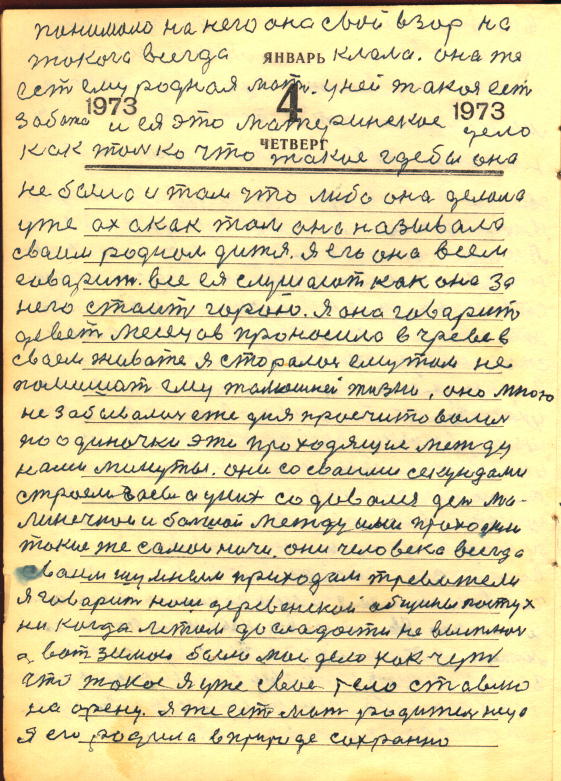 понимала на него она свой взор на
такога всегда ЯНВАРЬ клала. она же
ест ему родная мат. уней такоя ест
1973 4 1973
забота и ея это материнское дело
ЧЕТВЕРГ
как толко что такое гдебы она
не была и там что либо она делала
уже ах а как там она называла
сваим родном дитя. Я его она всем
говарит. все ея слушают как она за
него стаит горою. Я она говарит
девет месецов проносила в чреве в
сваем живате я сторалас ему там не
помишат ему жизни, оно мною
не забывалас еже дня просчитовалис
по одиночки эти проходящие между
нами минуты. они со сваими секундами
строели а уних содовался ден ма-
линечкои и балшой между ими проходили
такие же самаи ночи. они человека всегда
сваим шумным приходам тревожели
Я говарит нош деревенской общины пастух
ни когда летом до сладости не
а вот зимои было мое дело как черт
что такое я уже свае тело ставлю
на арену. Я же ест мат родителница
Я его родила в природе сохранно